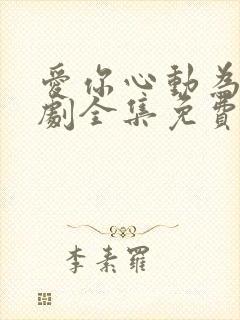 愛你心動為
劇全集免費
李素羅